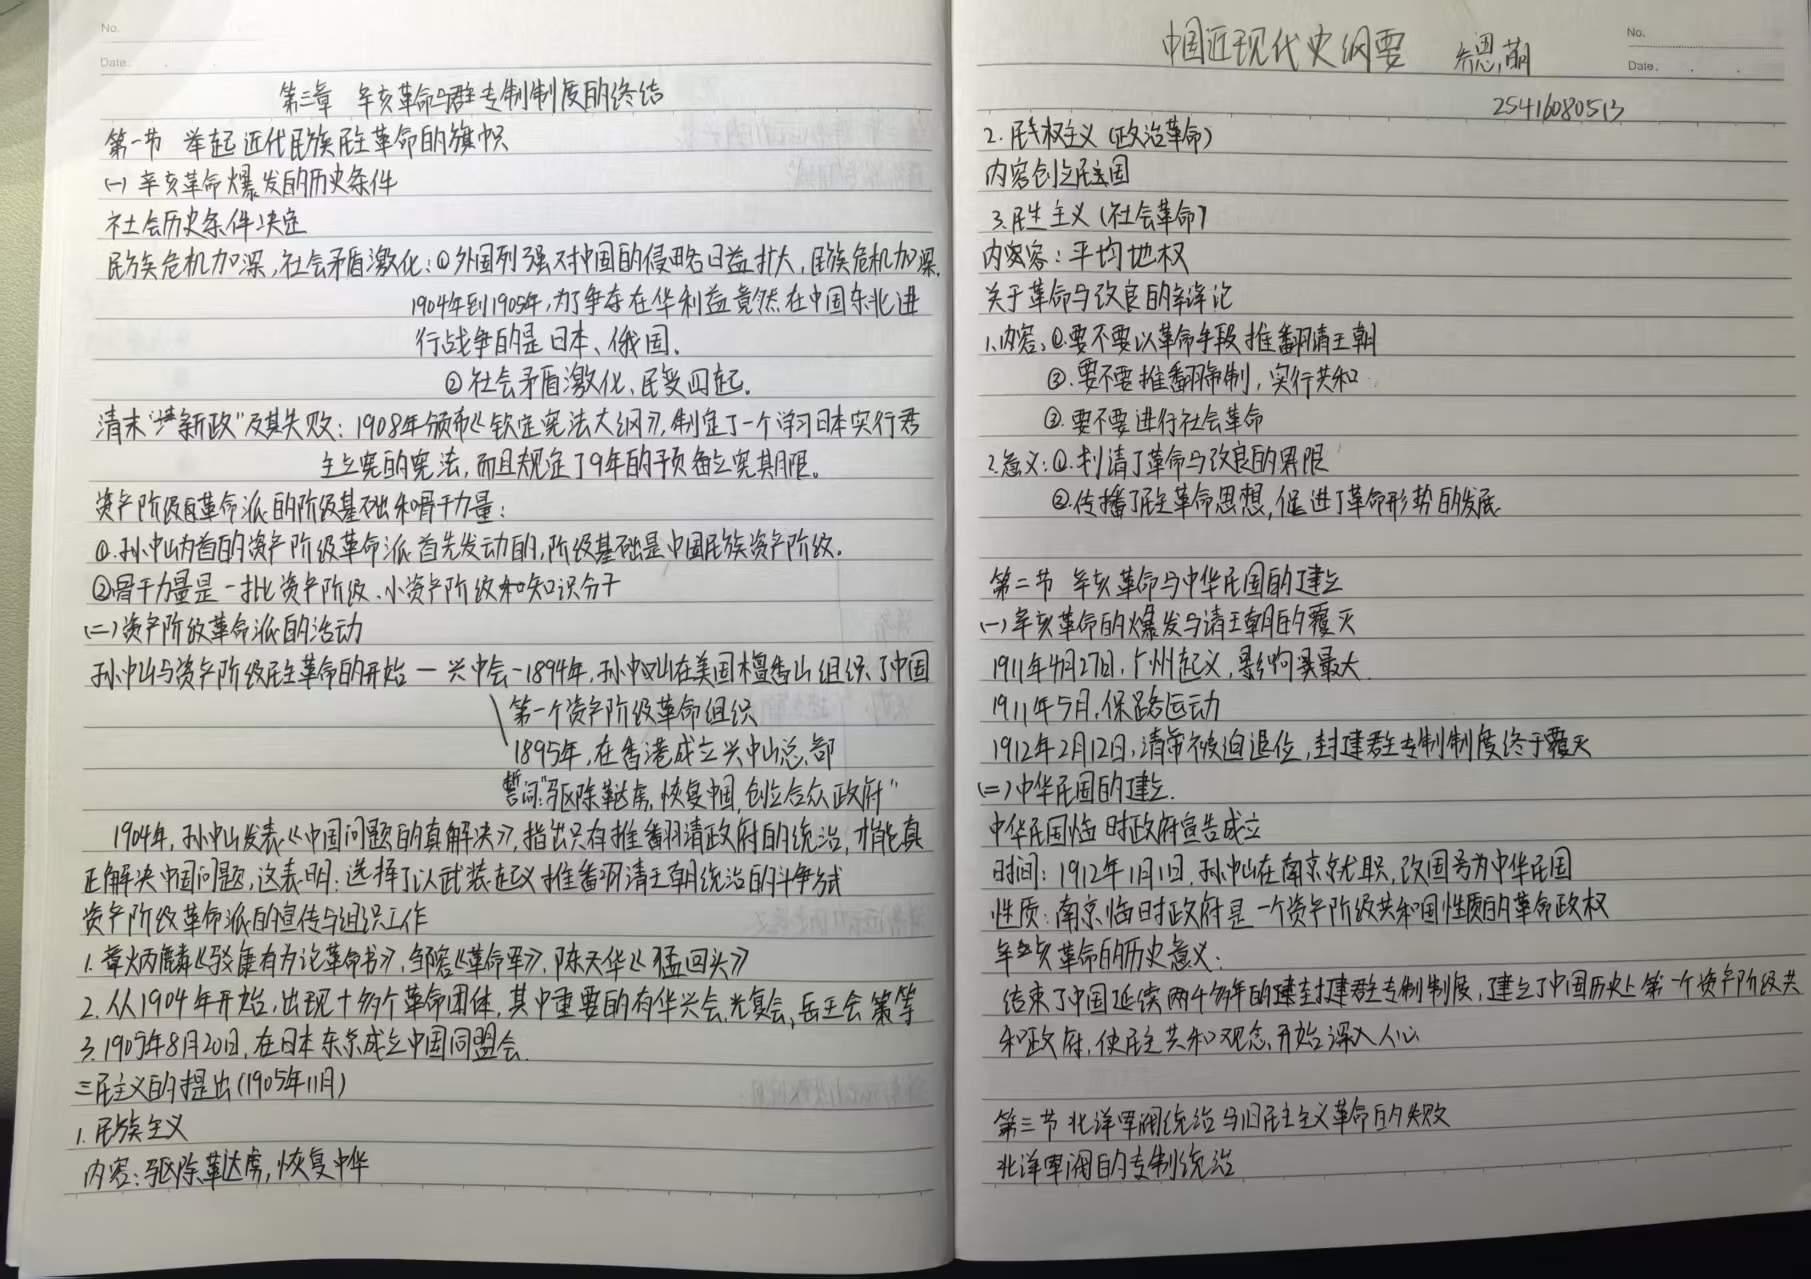 No.
Date.
第三章 辛亥革命与君主专制制度的终结
第一节 举起近代民族民主革命的旗帜
(一) 辛亥革命爆发的历史条件
社会历史条件决定
民族危机加深,社会矛盾激化:①外国列强对中国的侵略日益扩大,民族危机加深.
1904年到1905年,为了争夺在华利益竟然在中国东北进
行战争的是日本、俄国.
②社会矛盾激化、民变四起.
清末"新政"及其失败:1908年颁布《钦定宪法大纲》,制定了一个学习日本实行君
主立宪的宪法,而且规定了9年的预备立宪期限。
资产阶级革命派的阶级基础和骨干力量:
①.孙中山为首的资产阶级革命派首先发动的,阶级基础是中国民族资产阶级.
②骨干力量是一批资产阶级、小资产阶级和知识分子
(二)资产阶级革命派的活动
孙中山与资产阶级民主革命的开始 — 兴中会-1894年,孙中山在美国檀香山组织了中国
第一个资产阶级革命组织
1895年,在香港成立兴中山总部
誓词:"驱除鞑虏,恢复中国,创立合众政府"
1904年,孙中山发表《中国问题的真解决》,指出只有推翻清政府的统治,才能真
正解决中国问题,这表明:选择了以武装起义推翻清王朝统治的斗争方式
资产阶级革命派的宣传与组织工作
1.章炳麟《驳康有为论革命书》,邹容《革命军》,陈天华《猛回头》
2.从1904年开始,出现十多个革命团体,其中重要的有华兴会、光复会、岳王会等
3.1905年8月20日,在日本东京成立中国同盟会.
三民主义的提出(1905年11月)
1.民族主义
内容:驱除鞑虏,恢复中华
中国近现代史纲要
No.
Date.
25416080513
2.民权主义(政治革命)
内容创立民国
3.民生主义(社会革命)
内容:平均地权
关于革命与改良的辩论
1.内容:①.要不要以革命手段推翻清王朝
②.要不要推翻帝制,实行共和
③.要不要进行社会革命
2.意义:①.划清了革命与改良的界限
②.传播了民主革命思想,促进了革命形势的发展
第二节 辛亥革命与中华民国的建立
(一)辛亥革命的爆发与清王朝的覆灭
1911年4月27日,广州起义,影响最大.
1911年5月,保路运动
1912年2月12日,清帝被迫退位,封建君主专制制度终于覆灭
(二)中华民国的建立.
中华民国临时政府宣告成立
时间:1912年1月1日,孙中山在南京就职,改国号为中华民国
性质:南京临时政府是一个资产阶级共和国性质的革命政权
辛亥革命的历史意义:
结束了中国延续两千多年的封建君主专制制度,建立了中国历史上第一个资产阶级共
和政府,使民主共和观念开始深入人心
第三节 北洋军阀统治与旧民主主义革命的失败
北洋军阀的专制统治